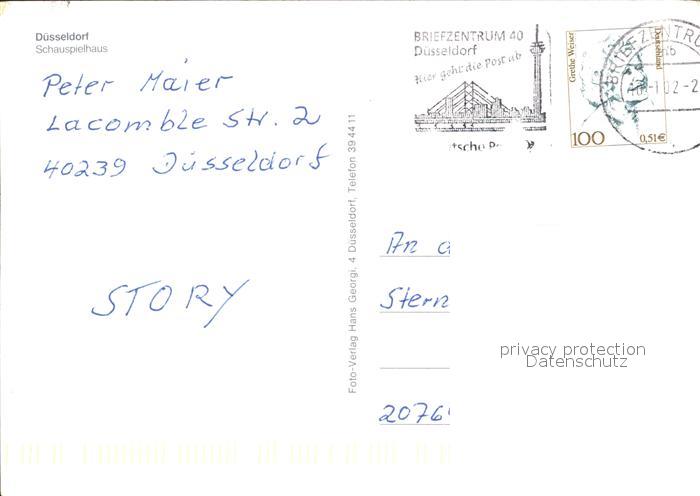 Düsseldorf
Schauspielhaus
Peter Maier
Lacomble Str. 2
40239 Düsseldorf
STORY
Foto-Verlag Hans Georgi, 4 Düsseldorf, Telefon 39 44 11
BRIEFZENTRUM 40
Düsseldorf
Hier geht die Post ab
tsche P
Grethe Weiser
Deutschland
100
0,51€
BRIEFZENTRU
An
Stern
2076
privacy protection
Datenschutz